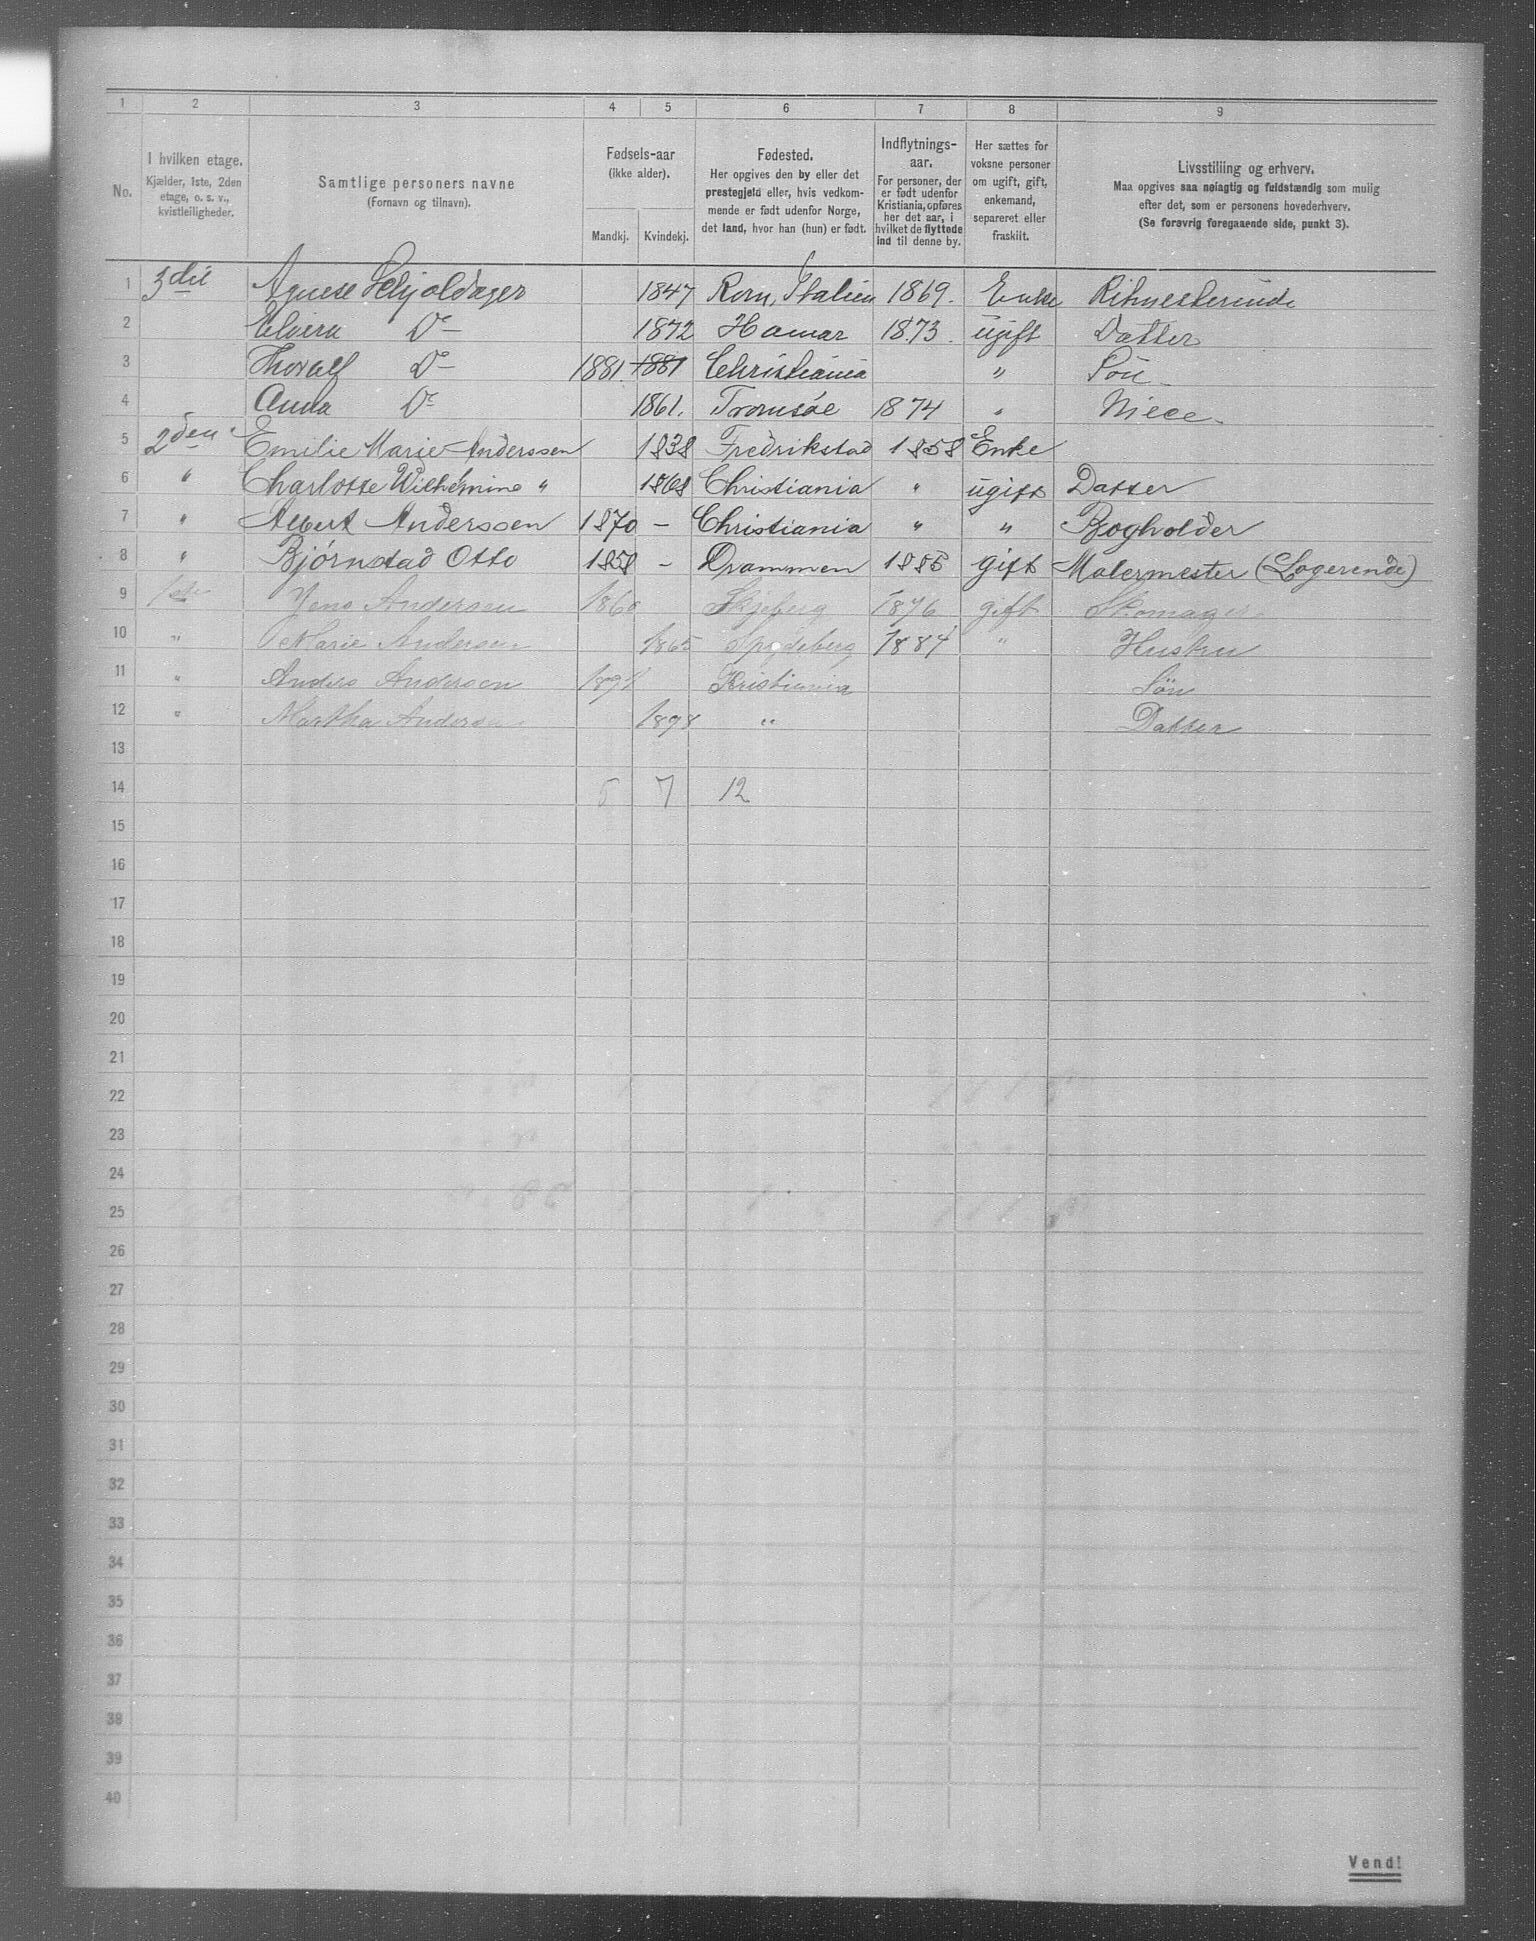 1 2 3 4 5 6 7 8 9
No.
I hvilken etage.
Kjælder, 1ste, 2den
etage, o. s. v.,
kvistleiligheder.
Samtlige personers navne
(Fornavn og tilnavn).
Fødsels-aar
(ikke alder).
Mandkj. Kvindekj.
Fødested.
Her opgives den by eller det
prestegjeld eller, hvis vedkom-
mende er født udenfor Norge,
det land, hvor han (hun) er født.
Indflytnings-
aar.
For personer, der
er født udenfor
Kristiania, opføres
her det aar, i
hvilket de flyttede
ind til denne by.
Her sættes for
voksne personer
om ugift, gift,
enkemand,
separeret eller
fraskilt.
Livsstilling og erhverv.
Maa opgives saa nøiagtig og fuldstændig som mulig
efter det, som er personens hovederhverv.
(Se forøvrig foregaaende side, punkt 3).
1 3die Agnese Schjoldager 1847 Rom, Italien 1869. Enke
2 Elvira Do 1872 Hamar 1873. ugift Datter
3 Thoralf Do 1881 1881 Christiania " Søn
4 Anna Do 1861. Tromsöe 1874 " Niece
5 2den Emilie Marie Anderssen 1838 Fredrikstad 1858 Enke
6 " Charlotte Wilhelmine " 1868 Christiania " ugift Datter
7 " Albert Anderssen 1870 - Christiania " " Bogholder
8 " Bjørnstad Otto 1858 - Drammen 1885 gift Malermester (Logerende)
9 1ste Jens Andersen 1860 Skjeberg 1876 gift Skomager
10 " Marie Andersen 1865 Spydeberg 1884 " Hustru
11 " Anders Andersen 1891 Kristiania Søn
12 " Martha Andersen 1898 " Datter
13
14 5 7 12
15
16
17
18
19
20
21
22
23
24
25
26
27
28
29
30
31
32
33
34
35
36
37
38
39
40
Vend!